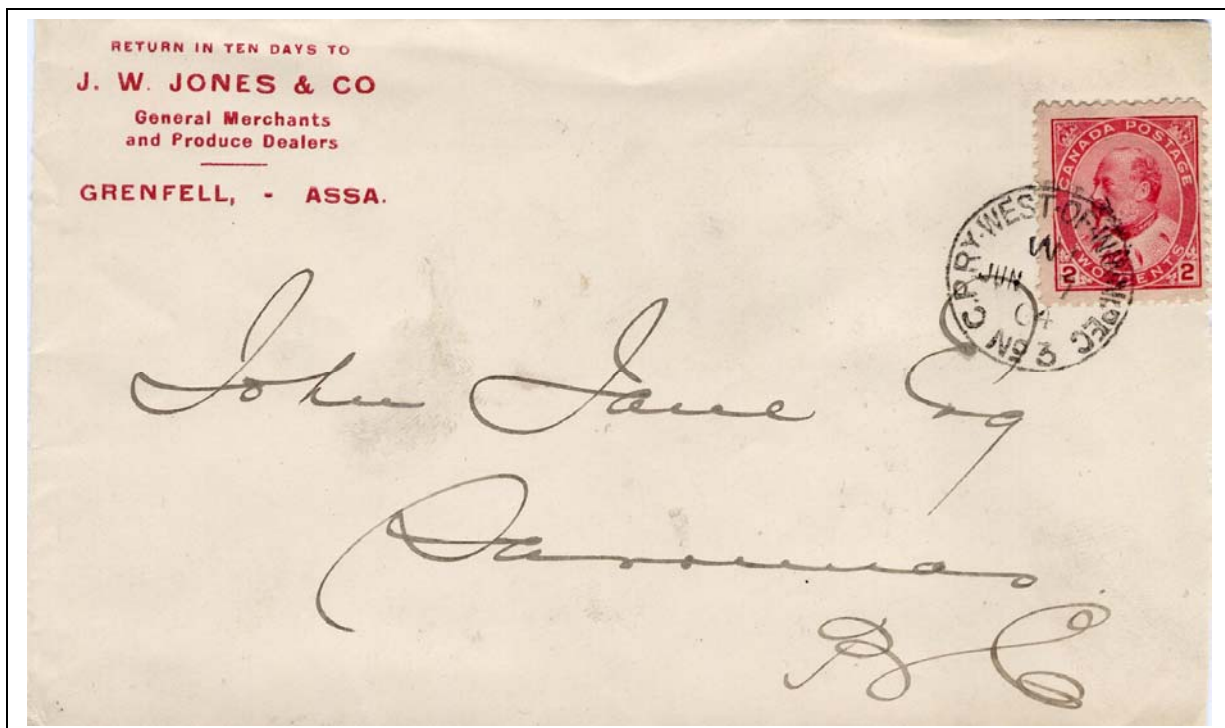 RETURN IN TEN DAYS TO
J. W. JONES & CO
General Merchants
and Produce Dealers
GRENFELL, - ASSA.
CANADA POSTAGE
2 TWO CENTS 2
C.P.RY·WEST·OF·WINNIPEG
W
JUN 7
04
No 3
John Jane Esq
Savonas
B C